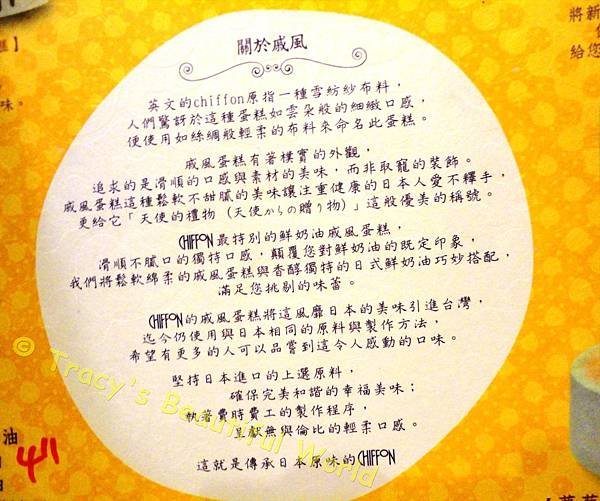 關於戚風
英文的chiffon原指一種雪紡紗布料，
人們驚訝於這種蛋糕如雲朵般的細緻口感，
便使用如絲綢般輕柔的布料來命名此蛋糕。
戚風蛋糕有著樸實的外觀，
追求的是滑順的口感與素材的美味，而非取寵的裝飾。
戚風蛋糕這種鬆軟不甜膩的美味讓注重健康的日本人愛不釋手，
更給它「天使的禮物（天使からの贈り物）」這般優美的稱號。
CHIFFON最特別的鮮奶油戚風蛋糕，
滑順不膩口的獨特口感，顛覆您對鮮奶油的既定印象，
我們將鬆軟綿柔的戚風蛋糕與香醇獨特的日式鮮奶油巧妙搭配，
滿足您挑剔的味蕾。
CHIFFON的戚風蛋糕將這風靡日本的美味引進台灣，
迄今仍使用與日本相同的原料與製作方法，
希望有更多的人可以品嘗到這令人感動的口味。
堅持日本進口的上選原料，
確保完美和諧的幸福美味；
執著費時費工的製作程序，
呈獻無與倫比的輕柔口感。
這就是傳承日本原味的CHIFFON
© Tracy's Beautiful World
將新
給您
味。
油